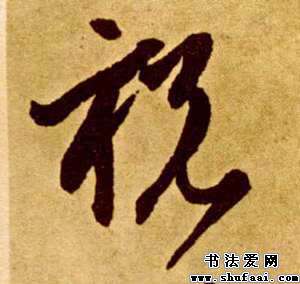 祝
书法爱网
www.shufaai.com